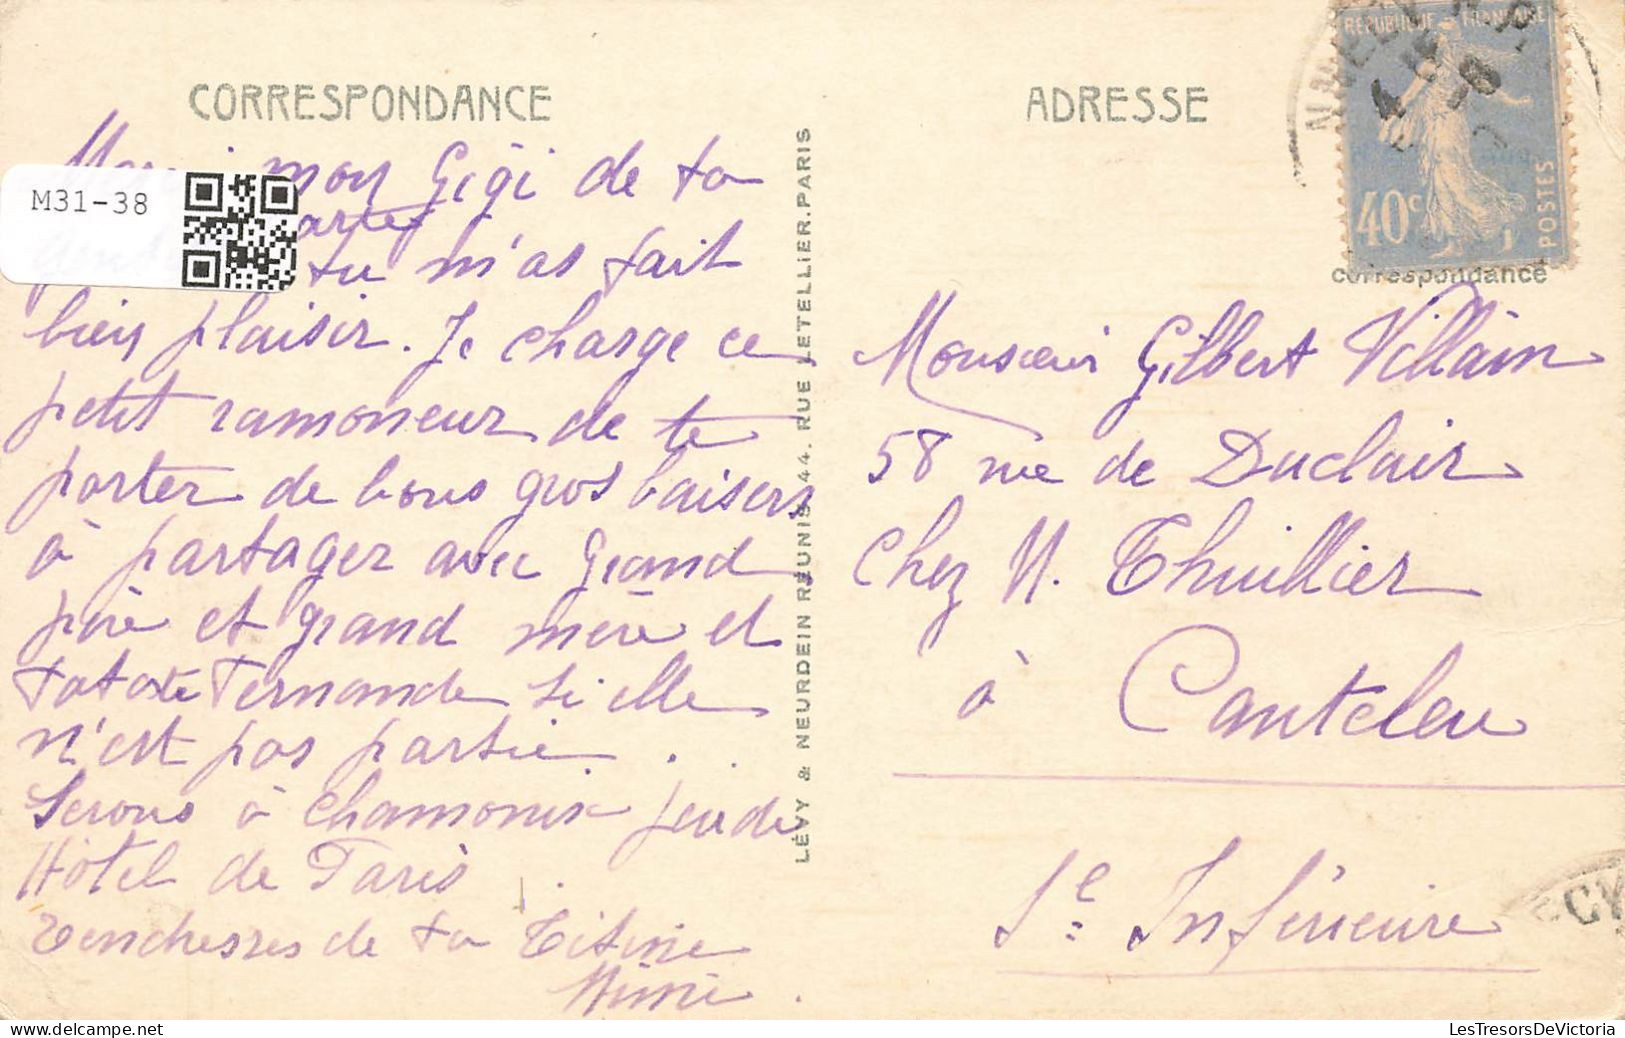 CORRESPONDANCE
mon Gigi de ta
M31-38
carte
tu m'as fait
bien plaisir. Je charge ce
petit ramoneur de te
porter de bons gros baisers
à partager avec Grand
père et grand mère et
tatate Fernande si elle
n'est pas partie.
Serons à Chamonix jeudi
Hôtel de Paris
Tendresses de ta Titine
Mimi.
LÉVY & NEURDEIN RÉUNIS, 44, RUE LETELLIER, PARIS
ADRESSE
REPUBLIQUE FRANCAISE
40c
POSTES
correspondance
Monsieur Gilbert Villain
58 rue de Duclair
Chez M. Thuillier
à Canteleu
Se Inférieure
LesTresorsDeVictoria
map-fr.delcampe.net